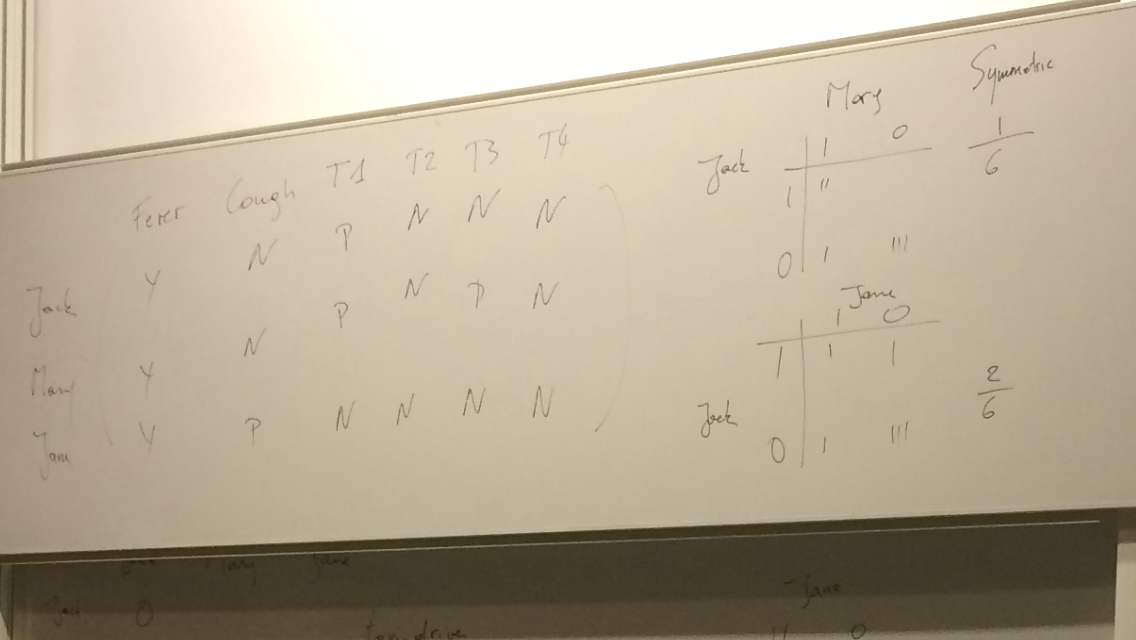 Fever Cough T1 T2 T3 T4
Jack Y N P N N N
Mary Y N P N P N
Jane Y P N N N N
Mary Symmetric
Jack 1 0
1 11
0 1 111
1/6
Jane
1 0
1 1 1
Jack
0 1 111
2/6
Mary Jane
Jack 0
Jane
0